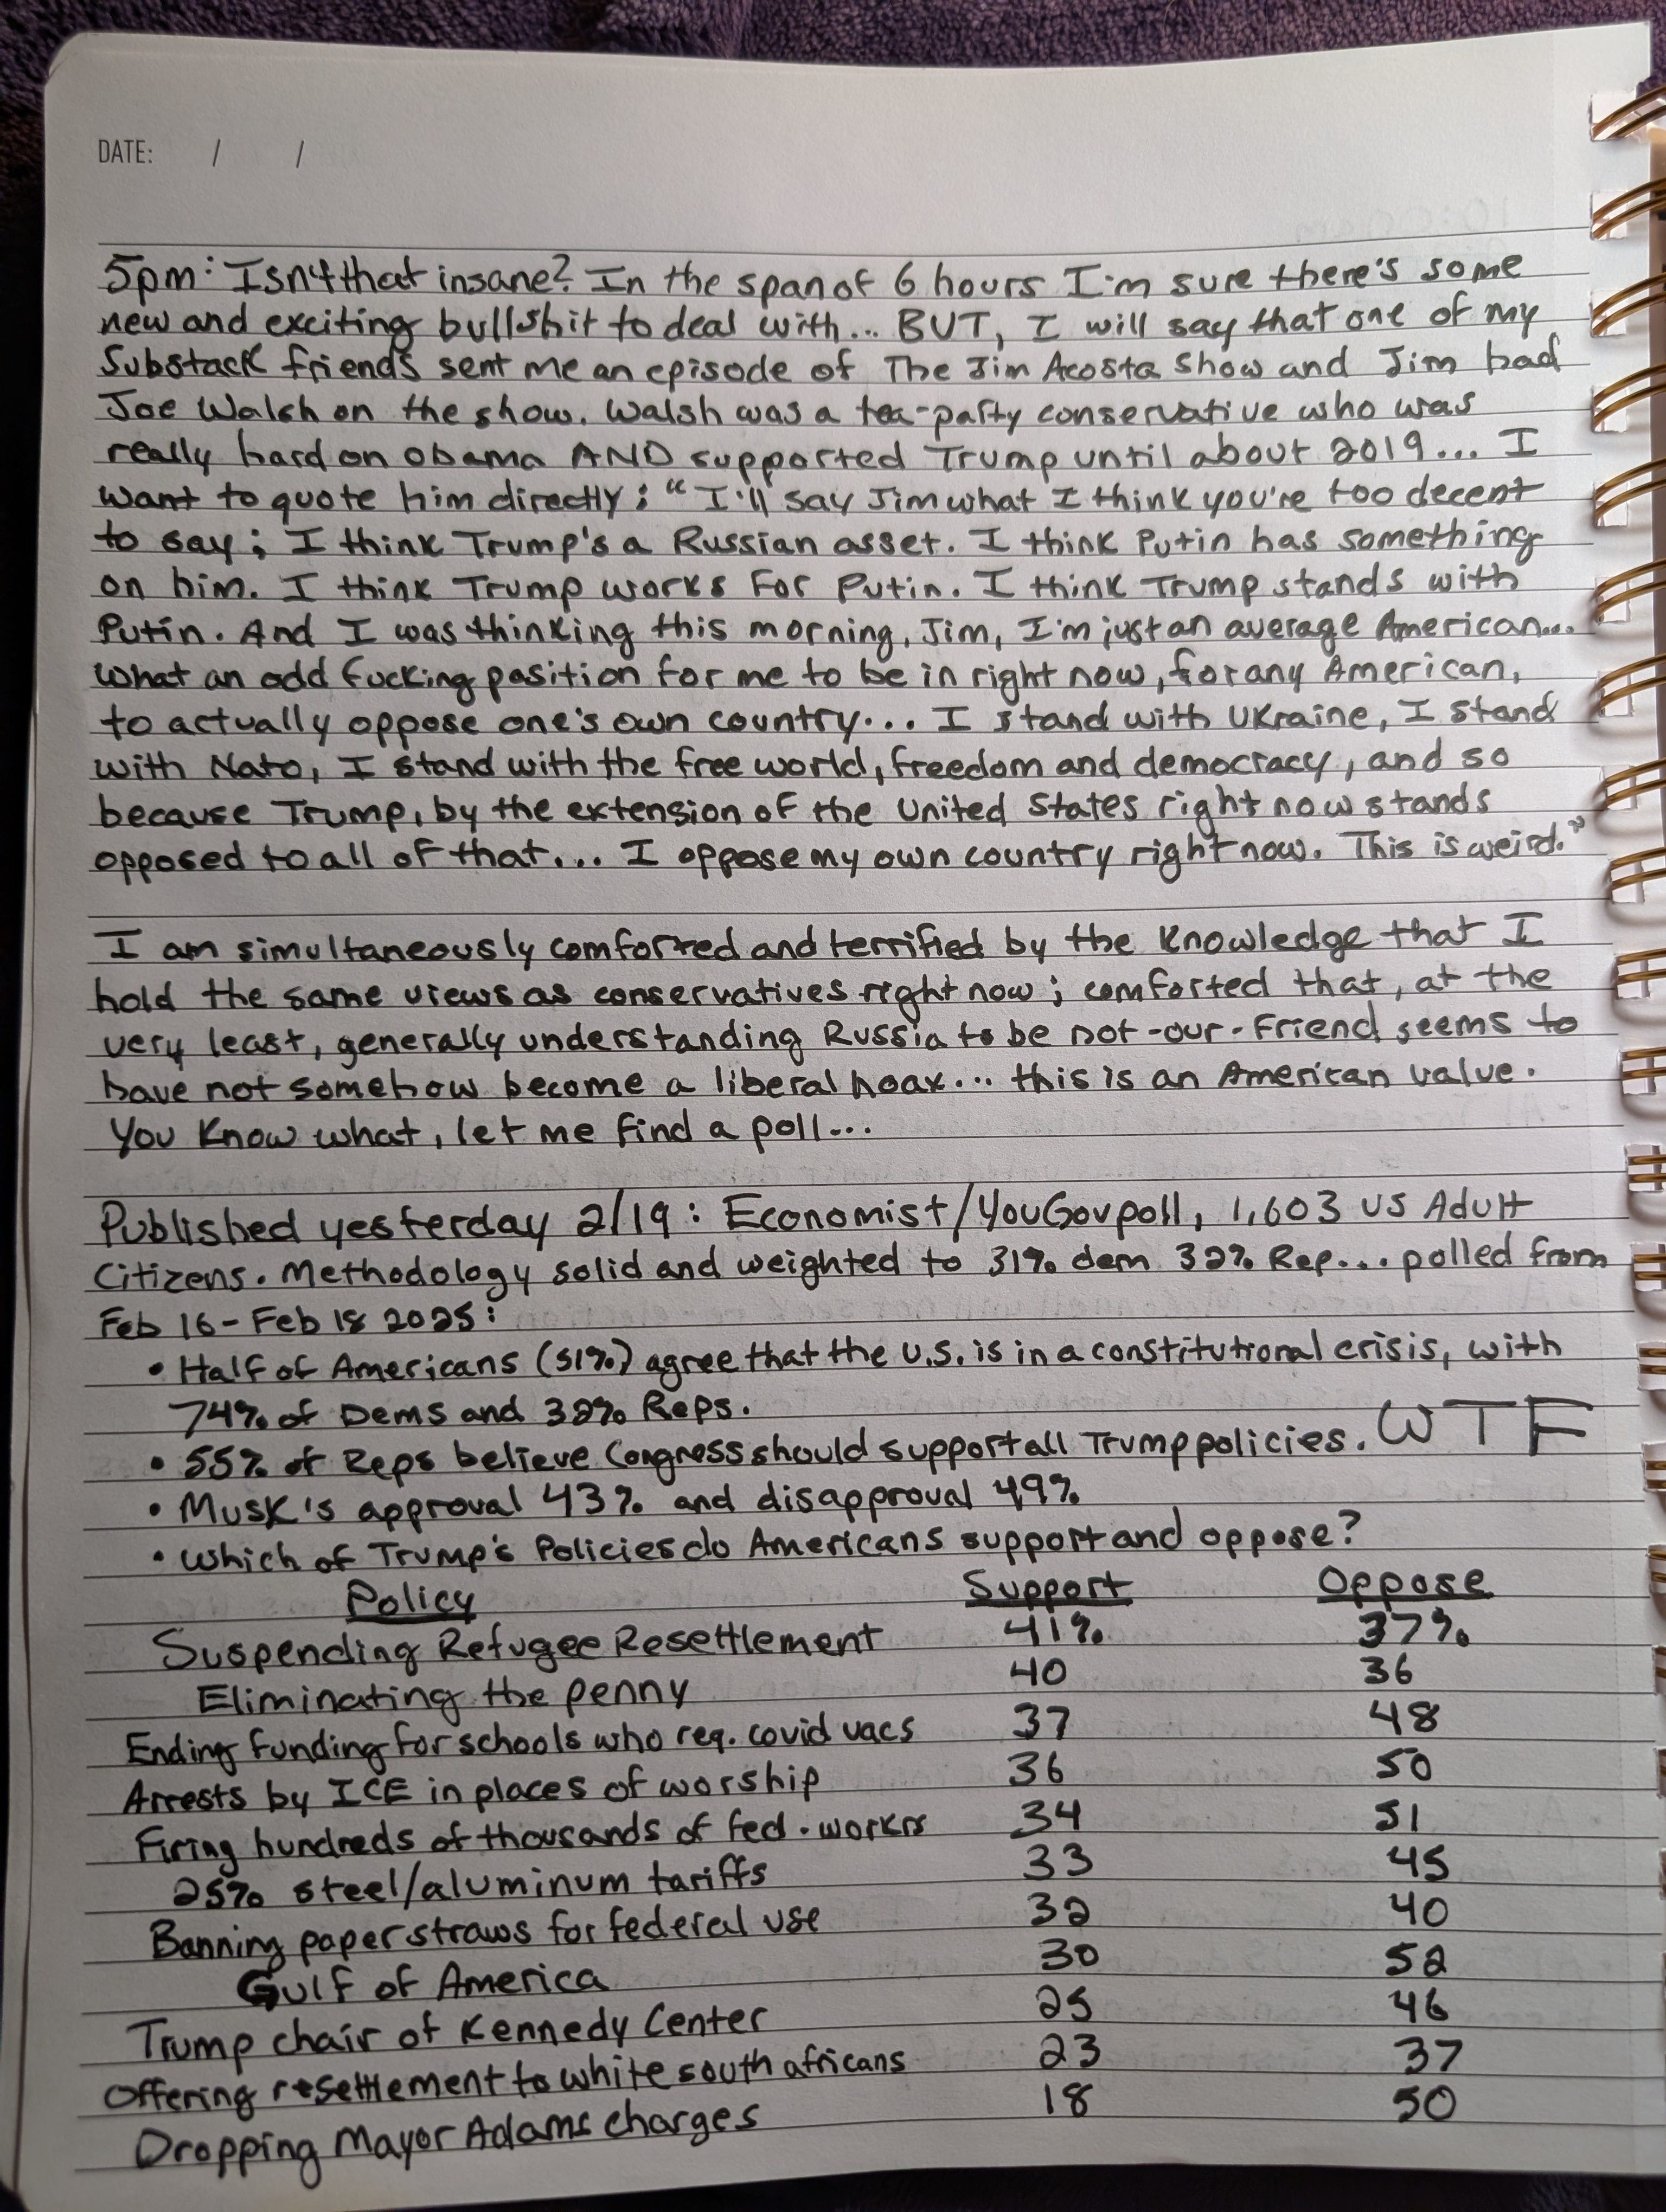 DATE: / /
5pm: Isn't that insane? In the span of 6 hours I'm sure there's some
new and exciting bullshit to deal with... BUT, I will say that one of my
Substack friends sent me an episode of The Jim Acosta Show and Jim had
Joe Walsh on the show. Walsh was a tea-party conservative who was
really hard on Obama AND supported Trump until about 2019... I
want to quote him directly: "I'll say Jim what I think you're too decent
to say; I think Trump's a Russian asset. I think Putin has something
on him. I think Trump works for Putin. I think Trump stands with
Putin. And I was thinking this morning, Jim, I'm just an average American...
what an odd fucking position for me to be in right now, for any American,
to actually oppose one's own country... I stand with Ukraine, I stand
with Nato, I stand with the free world, freedom and democracy, and so
because Trump, by the extension of the United States right now stands
opposed to all of that... I oppose my own country right now. This is weird."
I am simultaneously comforted and terrified by the knowledge that I
hold the same views as conservatives right now; comforted that, at the
very least, generally understanding Russia to be not-our-friend seems to
have not somehow become a liberal hoax... this is an American value.
You know what, let me find a poll...
Published yesterday 2/19: Economist/YouGov poll, 1,603 US Adult
Citizens. Methodology solid and weighted to 31% dem 32% Rep... polled from
Feb 16-Feb 18 2025:
• Half of Americans (51%) agree that the U.S. is in a constitutional crisis, with
74% of Dems and 32% Reps.
• 55% of Reps believe Congress should support all Trump policies. WTF
• Musk's approval 43% and disapproval 49%
• Which of Trump's Policies do Americans support and oppose?
Policy Support Oppose
Suspending Refugee Resettlement 41% 37%
Eliminating the penny 40 36
Ending funding for schools who req. covid vacs 37 48
Arrests by ICE in places of worship 36 50
Firing hundreds of thousands of fed. workrs 34 51
25% steel/aluminum tariffs 33 45
Banning paper straws for federal use 32 40
Gulf of America 30 52
Trump chair of Kennedy Center 25 46
Offering resettlement to white south africans 23 37
Dropping Mayor Adams charges 18 50